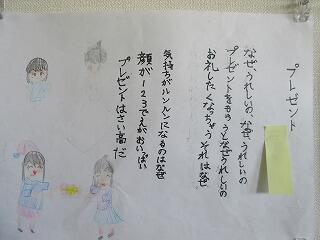 プレゼント
なぜ、うれしいの なぜ、うれしいの
プレゼントをもらうとなぜうれしいの
お礼したくなっちゃうそれはなぜ
気持ちがルンルンになるのはなぜ
顔が123でえがおいっぱい
プレゼントはさい高だ